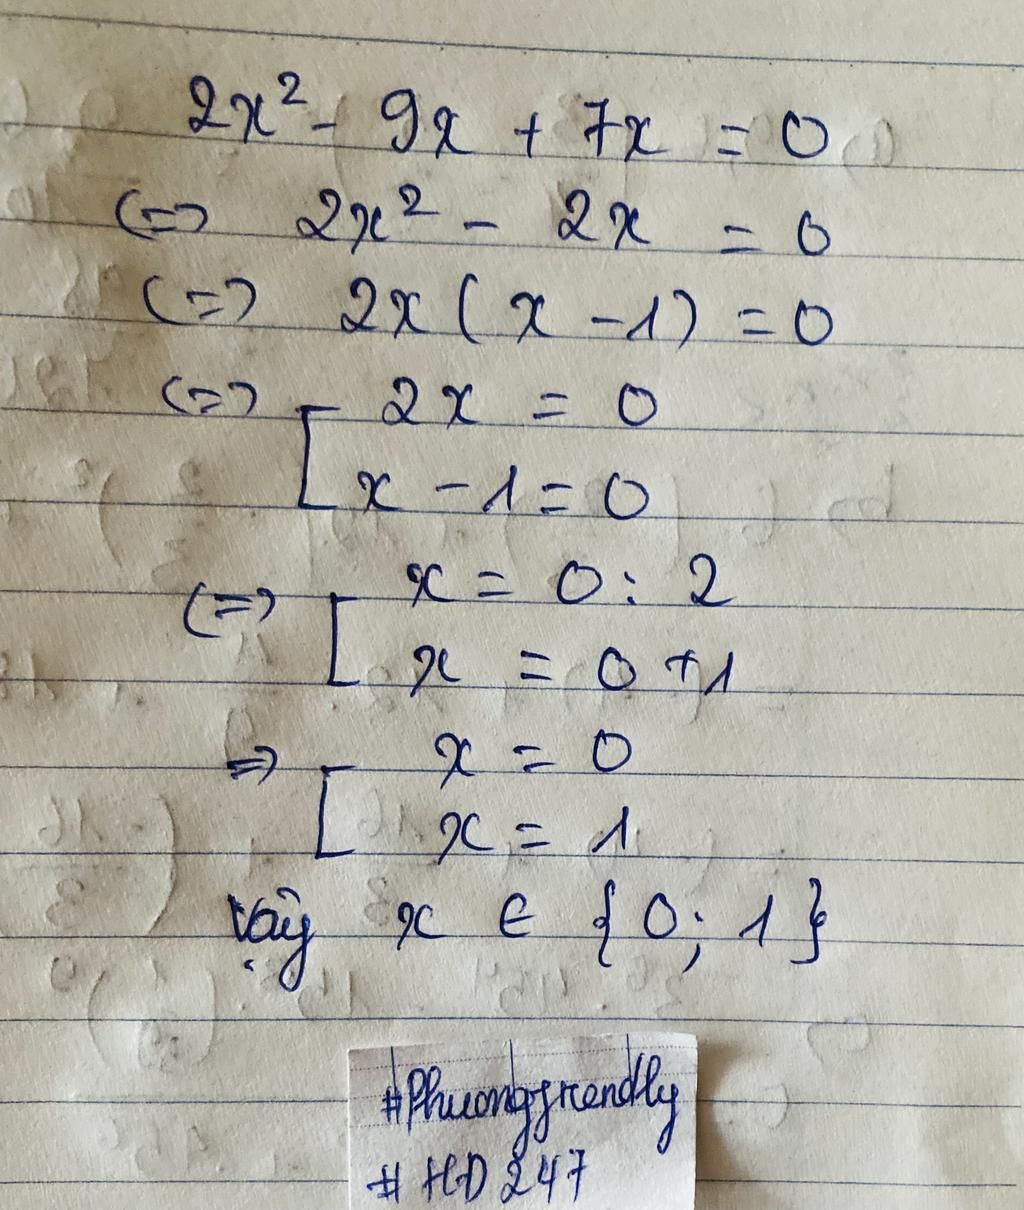 2x² - 9x + 7x = 0
(=) 2x² - 2x = 0
(=) 2x ( x - 1 ) = 0
(=) [ 2x = 0
x - 1 = 0
(=) [ x = 0 : 2
x = 0 + 1
=) [ x = 0
x = 1
Vậy x ∈ { 0 ; 1 }
#Phuongfrendly
# HD 247